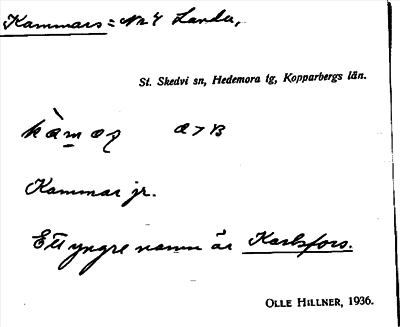 Kammars = Nr 4 Landa,
St. Skedvi sn, Hedemora tg, Kopparbergs län.
kàmaʃ a > B
Kammar jr.
Ett yngre namn är Karlsfors.
OLLE HILLNER, 1936.